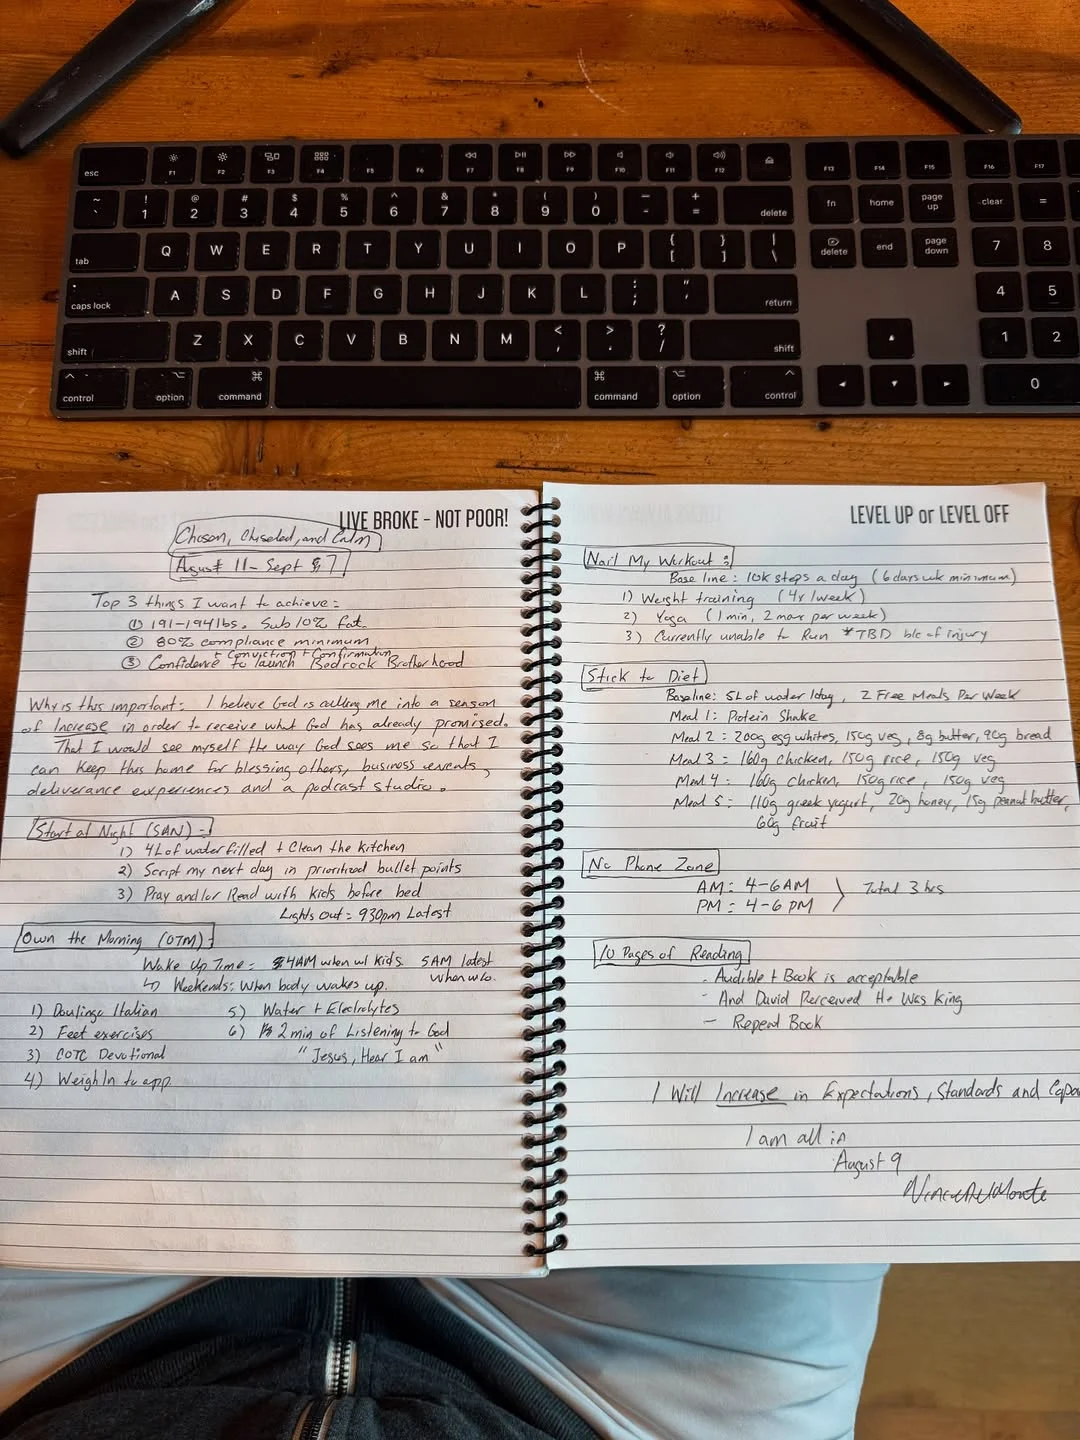 esc F1 F2 F3 F4 F5 F6 F7 F8 F9 F10 F11 F12 F13 F14 F15 F16 F17
~ ` ! 1 @ 2 # 3 $ 4 % 5 ^ 6 & 7 * 8 ( 9 ) 0 — - + = delete fn home page up clear =
tab Q W E R T Y U I O P { [ } ] | \ delete end page down 7 8
caps lock A S D F G H J K L : ; " ' return 4 5
shift Z X C V B N M < , > . ? / shift 1 2
control option command command option control 0
LIVE BROKE - NOT POOR!
Chosen, Chiseled, and Calm
August 11 - Sept 7
Top 3 things I want to achieve:
① 191-194lbs. Sub 10% fat.
② 80% compliance minimum
+ Conviction + Confirmation
③ Confidence to launch Bedrock Brotherhood
Why is this important: I believe God is calling me into a season
of Increase in order to receive what God has already promised.
That I would see myself the way God sees me so that I
can keep this home for blessing others, business events,
deliverance experiences and a podcast studio.
Start at Night (SAN) -
1) 4L of water filled + Clean the kitchen
2) Script my next day in prioritized bullet points
3) Pray and/or Read with kids before bed
Lights Out = 930pm Latest
Own the Morning (OTM):
Wake Up Time = 4AM when w/ kids. 5AM latest
when w/o.
↳ Weekends: when body wakes up.
1) Doulingo Italian
2) Feet exercises
3) COTC Devotional
4) Weigh In to app
5) Water + Electrolytes
6) 2 min of Listening to God
"Jesus, Hear I am"
LEVEL UP or LEVEL OFF
Nail My Workout :
Base line : 10k steps a day (6 days wk minimum)
1) Weight training (4x/week)
2) Yoga (1 min, 2 max per week)
3) Currently unable to Run *TBD b/c of injury
Stick to Diet
Baseline: 5L of water/day, 2 Free Meals Per Week
Meal 1: Protein Shake
Meal 2 = 200g egg whites, 150g veg, 8g butter, 90g bread
Meal 3 = 160g chicken, 150g rice, 150g veg
Meal 4 : 160g chicken, 150g rice, 150g veg
Meal 5 : 110g greek yogurt, 20g honey, 15g peanut butter,
60g fruit
No Phone Zone
AM: 4-6AM
PM = 4-6 PM
Total 3 hrs
10 Pages of Reading
- Audible + Book is acceptable
- And David Perceived He Was King
- Repeat Book
I Will Increase in Expectations, Standards and Capa
I am all in
August 9